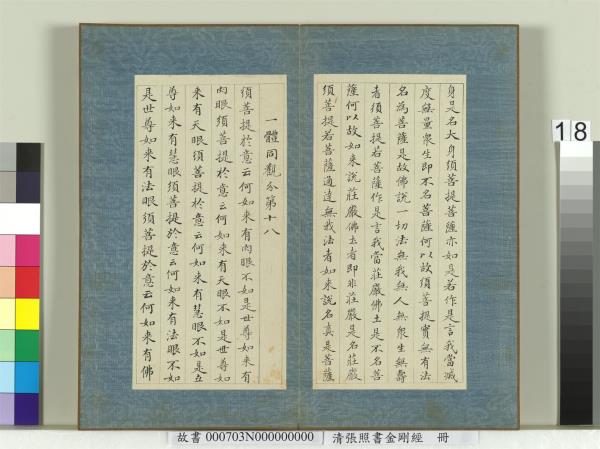 身是名大身須菩提菩薩亦如是若作是言我當滅
度無量衆生即不名菩薩何以故須菩提實無有法
名為菩薩是故佛說一切法無我無人無衆生無壽
者須菩提若菩薩作是言我當莊嚴佛土是不名菩
薩何以故如来說莊嚴佛土者即非莊嚴是名莊嚴
須菩提若菩薩通達無我法者如来說名真是菩薩
一體同觀分第十八
須菩提於意云何如来有肉眼不如是世尊如来有
肉眼須菩提於意云何如来有天眼不如是世尊如
来有天眼須菩提於意云何如来有慧眼不如是世
尊如来有慧眼須菩提於意云何如来有法眼不如
是世尊如来有法眼須菩提於意云何如来有佛
18
故書 000703N000000000 清張照書金剛經 冊